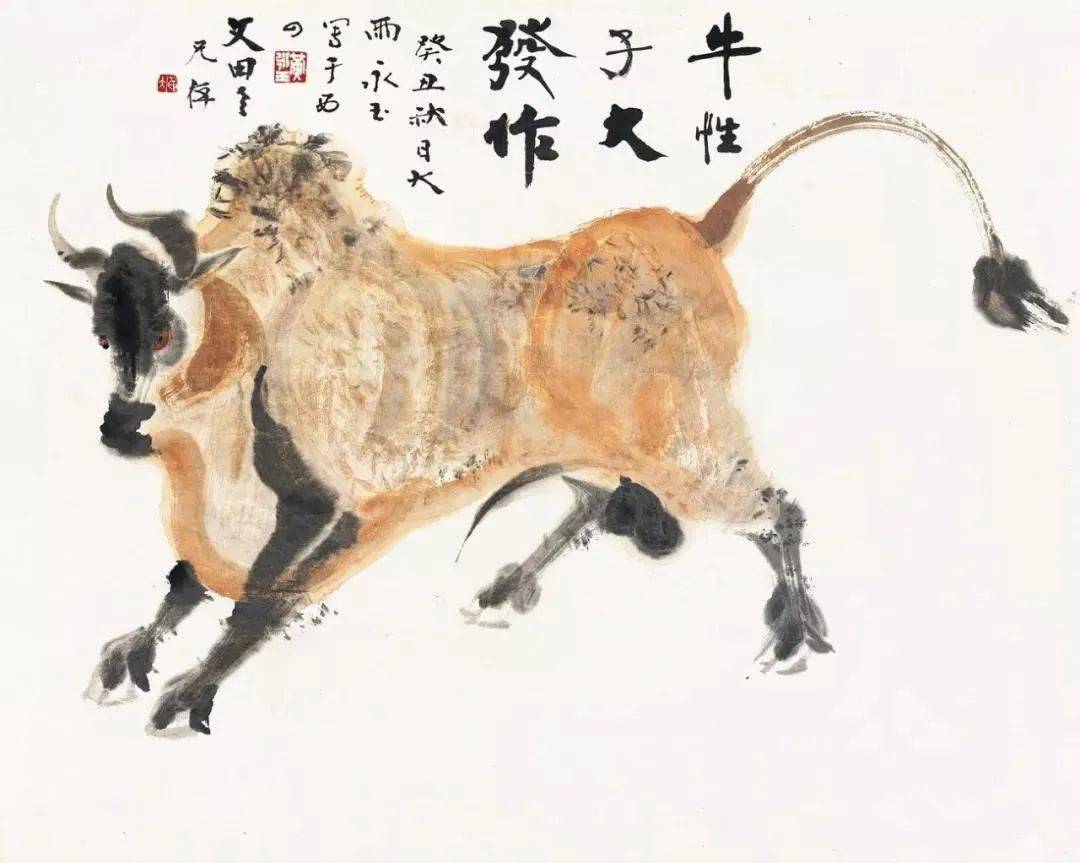 牛性
子大
發作
癸丑秋日大
雨永玉
寫于西
田
兄